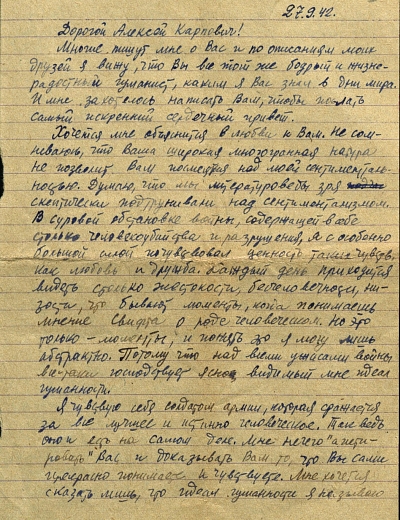 27.9.42.
Дорогой Алексей Карпович!
Многие пишут мне о Вас и по описаниям моих
друзей я вижу, что Вы все тот же бодрый и жизне-
радостный гуманист, каким я Вас знал в дни мира.
И мне захотелось написать Вам, чтобы послать
самый искренний сердечный привет.
Хочется мне объясниться в любви к Вам. Не сом-
неваюсь, что Ваша широкая многогранная натура
не позволит Вам посмеяться над моей сентименталь-
ностью. Думаю, что мы литературоведы зря
скептически подтрунивали над сентиментализмом.
В суровой обстановке войны, содержащей в себе
столько человекоубийства и разрушения, я с особенно
большой силой почувствовал ценность таких чувств,
как любовь и дружба. Каждый день приходится
видеть столько жестокости, бесчеловечности, ни-
зости, что бывают моменты, когда понимаешь
мнение Свифта о роде человеческом. Но это
только – моменты, и понять это я могу лишь
абстрактно. Потому что над всеми ужасами войны
все-таки господствует ясно видимый мне идеал
гуманности.
Я чувствую себя солдатом армии, которая сражается
за все лучшее и истинно человеческое. Так ведь
оно и есть на самом деле. Мне нечего "агити-
ровать" Вас и доказывать Вам то, что Вы сами
прекрасно понимаете и чувствуете. Мне хочется
сказать лишь, что идеал гуманности я называю